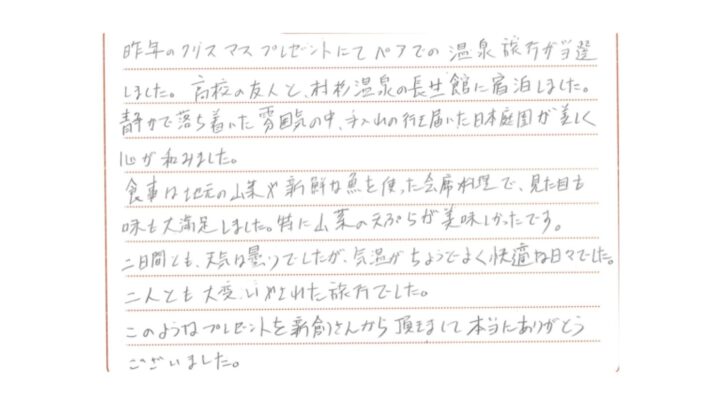 昨年のクリスマスプレゼントにてペアでの温泉旅行が当選
しました。高校の友人と、村杉温泉の長生館に宿泊しました。
静かで落ち着いた雰囲気の中、手入れの行き届いた日本庭園が美しく
心が和みました。
食事は地元の山菜や新鮮な魚を使った会席料理で、見た目も
味も大満足しました。特に山菜の天ぷらが美味しかったです。
二日間とも、天気は曇りでしたが、気温がちょうどよく快適な日々でした。
二人とも大変いやされた旅行でした。
このようなプレゼントを新創さんから頂きまして本当にありがとう
ございました。